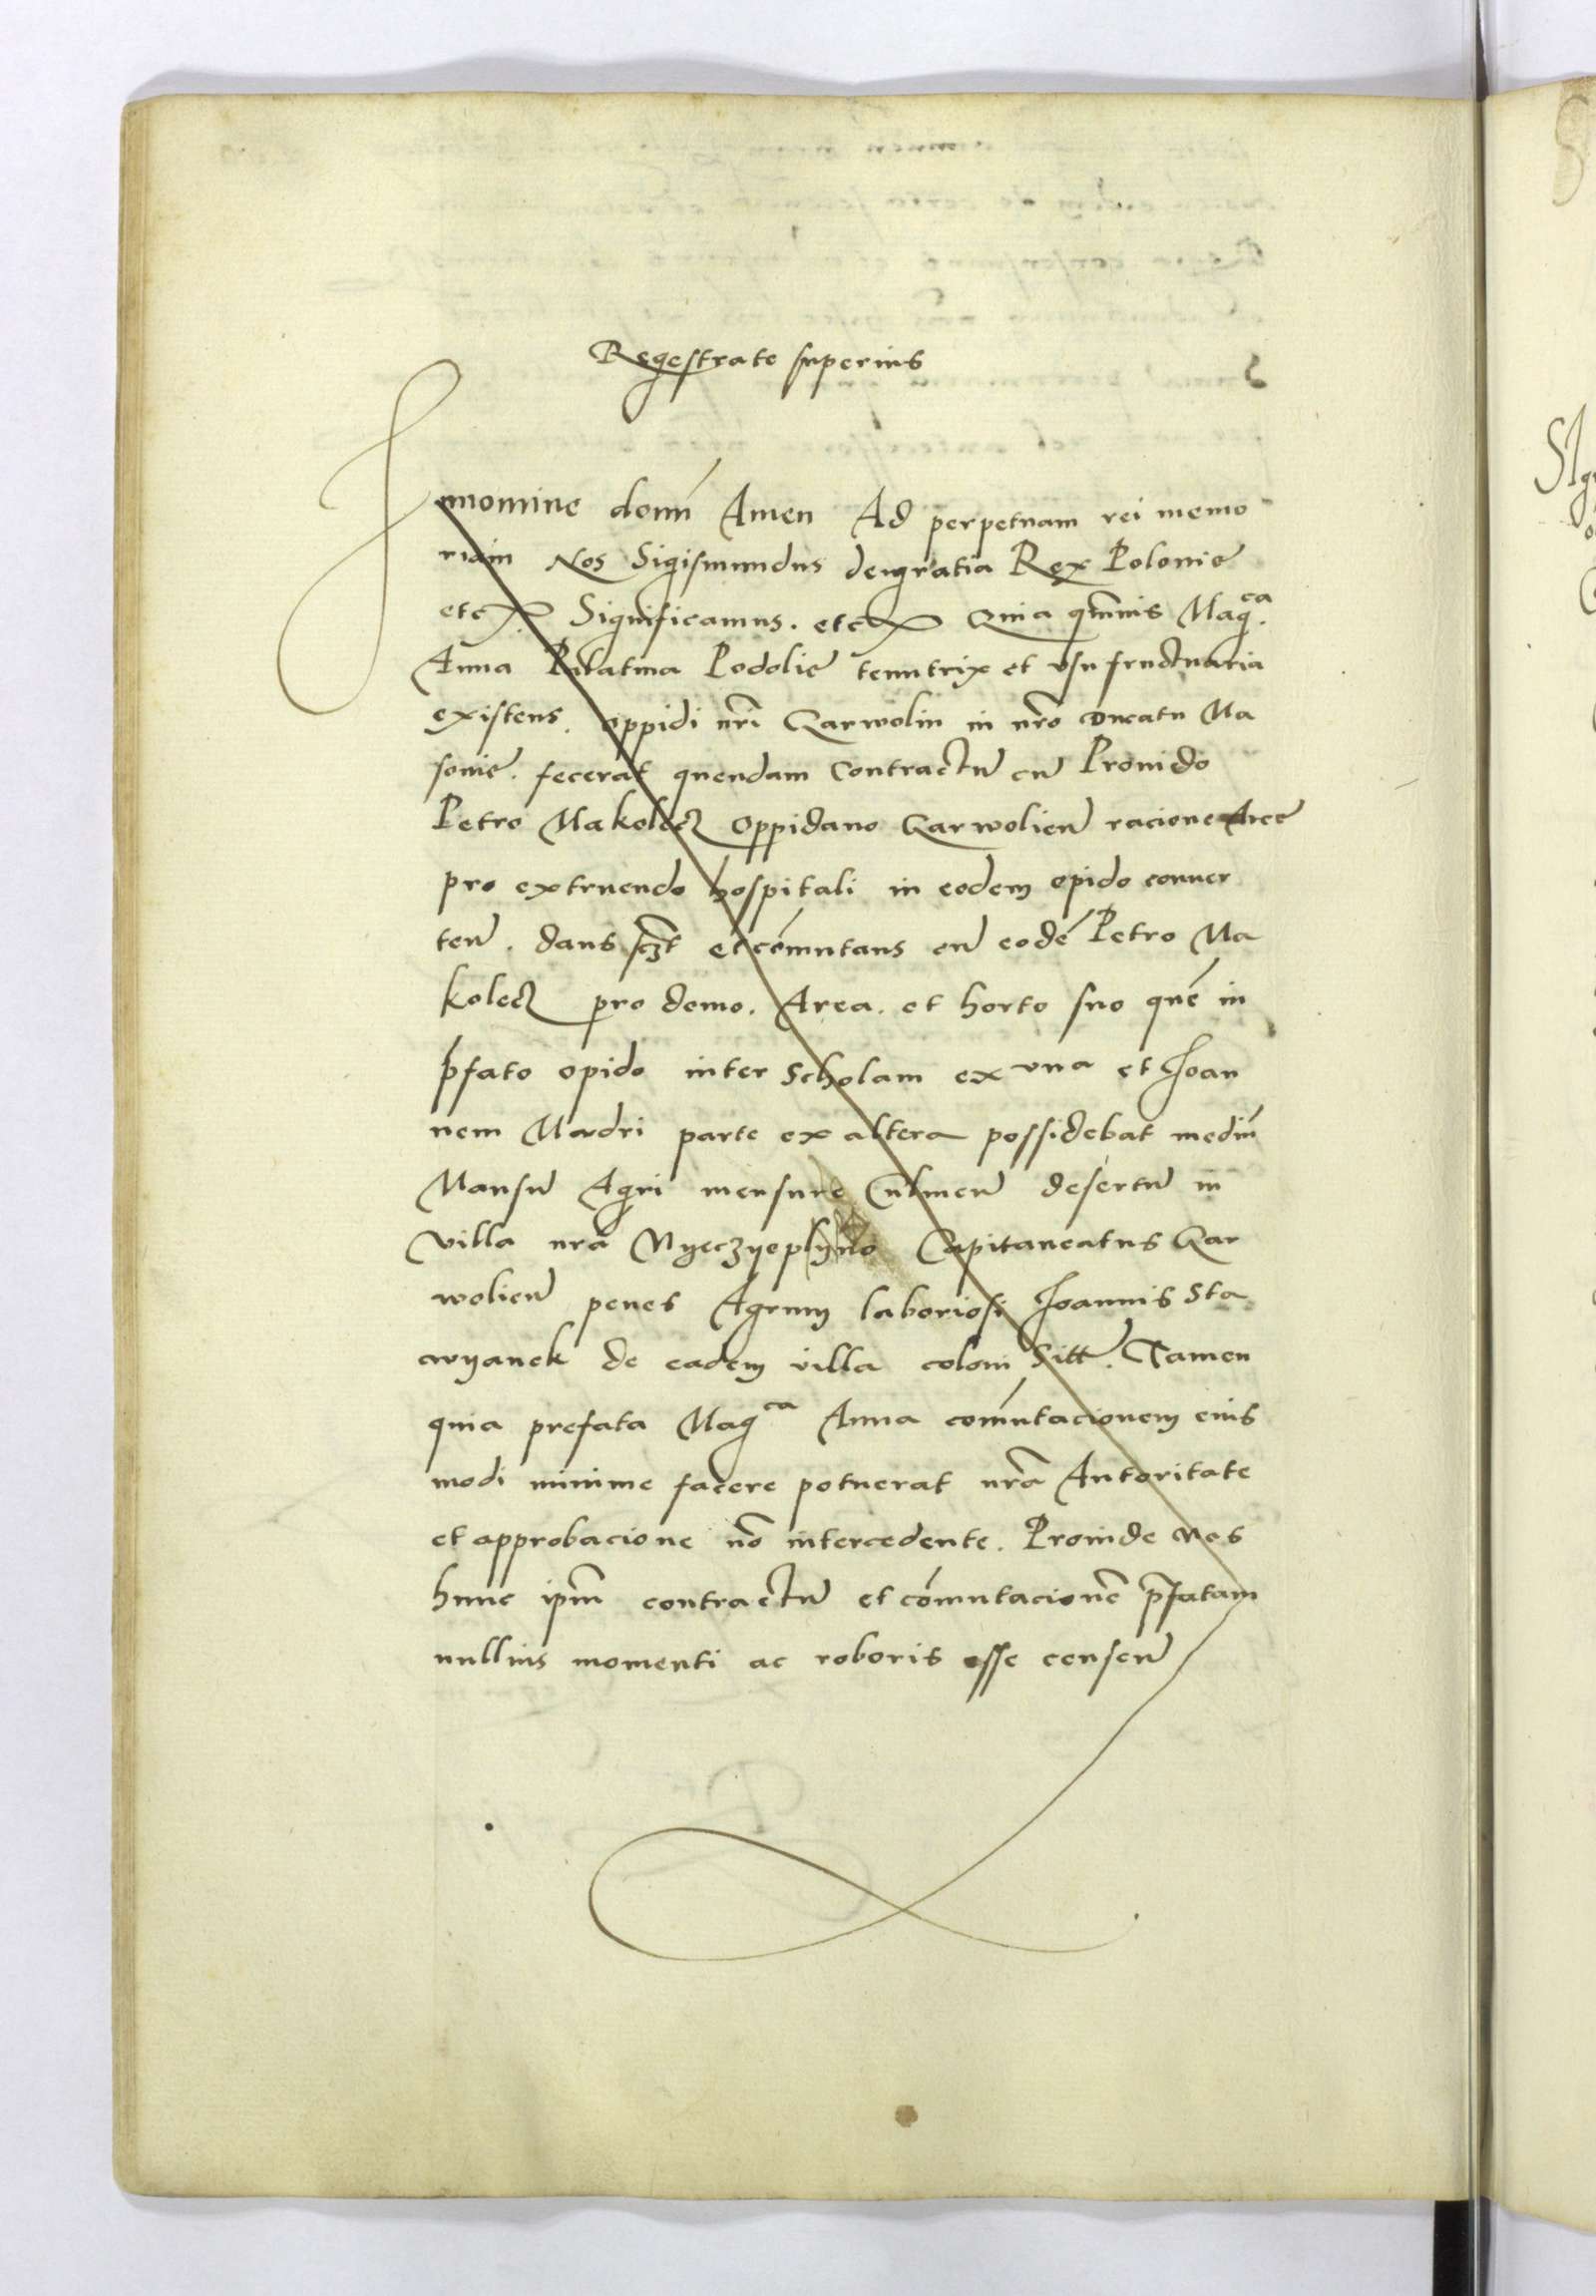 Regestrate superius
In nomine domī Amen Ad perpetuam rei memo
riam Nos Sigismundus dei gratia Rex Polonie
etc. Significamus. etc. Quia q̃muis Mag^ca.
Anna Palatina Podolie tenutrix et vsufructuaria
existens. oppidi nr̃i Garwolin in nr̃o Ducatu Ma
souie. fecerat quendam Contractũ cũ Prouido
Petro Makolecz Oppidano Garwolien̄ racione Aree
pro extruendo hospitali in eodem opido conuer
ten̄. dans sczt et cōmutans cũ eodē Petro Ma
kolecz pro domo. Area. et horto suo quē in
p̄fato opido inter Scholam ex vna et Joan
nem Madri parte ex altera possidebat mediū
Mansũ Agri mensure Culmen̄ desertũ in
villa nrā Nyeczyeplyno Capitaneatus Gar
wolien̄ penes Agrum laboriosi Joannis Sta
wyanek de eadem villa coloni Sitt̃. Tamen
quia prefata Mag^ca Anna com̄utacionem eius
modi minime facere potuerat nrā Autoritate
et approbacione nō intercedente. Proinde Nos
hunc ipm̄ contractũ et cōmutacionē p̄fatam
nullius momenti ac roboris esse censen̄